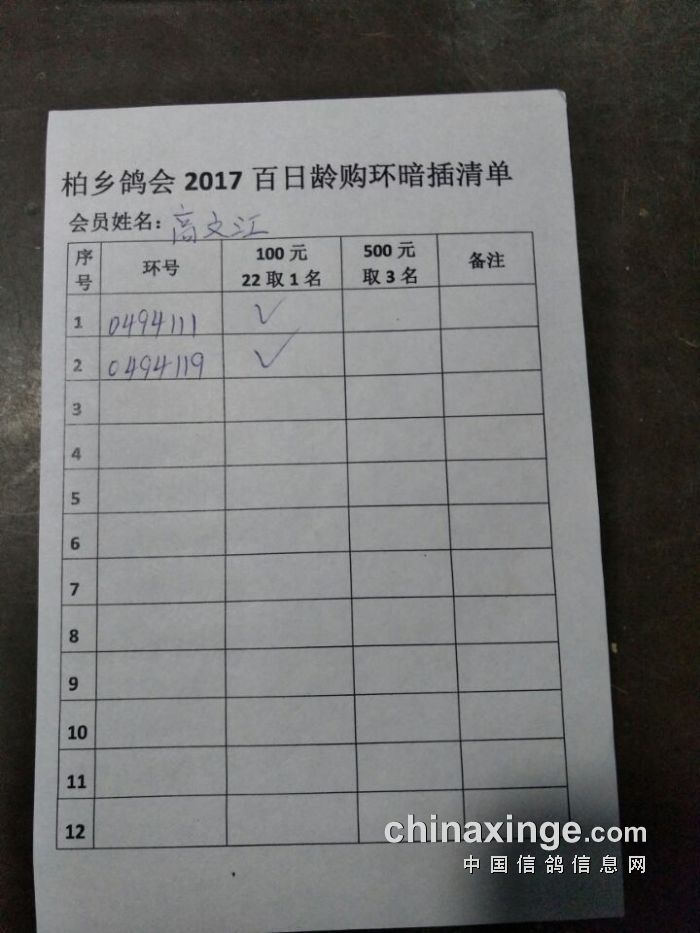 柏乡鸽会2017百日龄购环暗插清单
会员姓名：高文江
序号 环号 100元 22取1名 500元 取3名 备注
1 0494111 ✓
2 0494119 ✓
3
4
5
6
7
8
9
10
11
12
chinaxinge.com
中国信鸽信息网